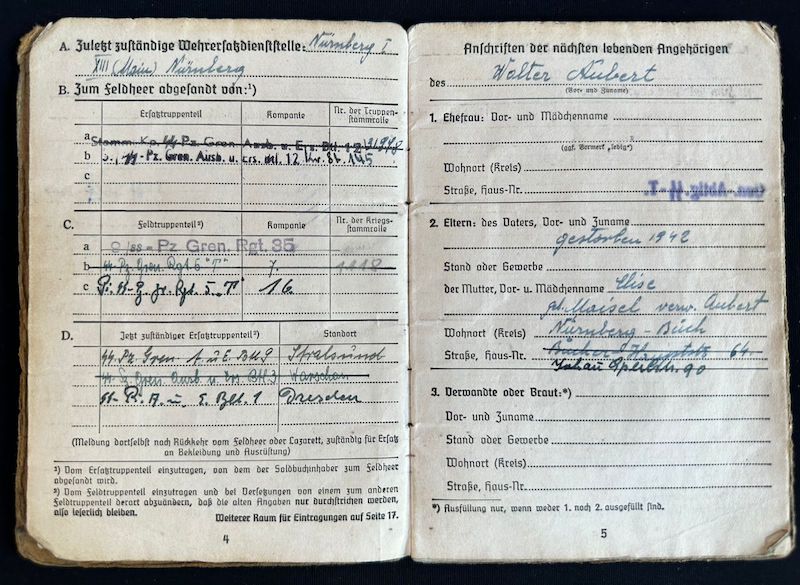 A. Zuletzt zuständige Wehrersatzdienststelle: Nürnberg I
XIII (Main) Nürnberg
B. Zum Feldheer abgesandt von:¹)
Ersatztruppenteil
Kompanie
Nr. der Truppen-
stammrolle
a Stamm. Kp. SS-Pz. Gren. Ausb. u. Ers. Btl. 12
b SS-Pz. Gren. Ausb. u. Ers. 12
c
d
C. Feldtruppenteil²)
Kompanie
Nr. der Kriegs-
stammrolle
a 9/SS-Pz Gren. Rgt. 35
b SS-Pz. Gren. Rgt. 5 "T" 7.
c SS-P. Gr. Rgt. 5 "T" 16
D. Jetzt zuständiger Ersatztruppenteil²)
Standort
SS-Pz. Gren. A. u. E. Btl. 9 Stralsund
SS-P. Gren. Ausb. u. Ers. Btl. 3 Warschau
SS-P. A. u. E. Btl. 1 Dresden
(Meldung dortselbst nach Rückkehr vom Feldheer oder Lazarett, zuständig für Ersatz
an Bekleidung und Ausrüstung)
¹) Vom Ersatztruppenteil einzutragen, von dem der Soldbuchinhaber zum Feldheer
abgesandt wird.
²) Vom Feldtruppenteil einzutragen und bei Versetzungen von einem zum anderen
Feldtruppenteil derart abzuändern, daß die alten Angaben nur durchstrichen werden,
also leserlich bleiben.
Weiterer Raum für Eintragungen auf Seite 17.
4
Anschriften der nächsten lebenden Angehörigen
des Walter Aubert
(Vor- und Zuname)
1. Ehefrau: Vor- und Mädchenname
(ggf. Vermerk „ledig")
Wohnort (Kreis)
Straße, Haus-Nr.
2. Eltern: des Vaters, Vor- und Zuname
gestorben 1942
Stand oder Gewerbe
der Mutter, Vor- u. Mädchenname Elise
geb. Maisel verw. Aubert
Wohnort (Kreis) Nürnberg-Buch
Straße, Haus-Nr. 64
90
3. Verwandte oder Braut:*)
Vor- und Zuname
Stand oder Gewerbe
Wohnort (Kreis)
Straße, Haus-Nr.
*) Ausfüllung nur, wenn weder 1. noch 2. ausgefüllt sind.
5